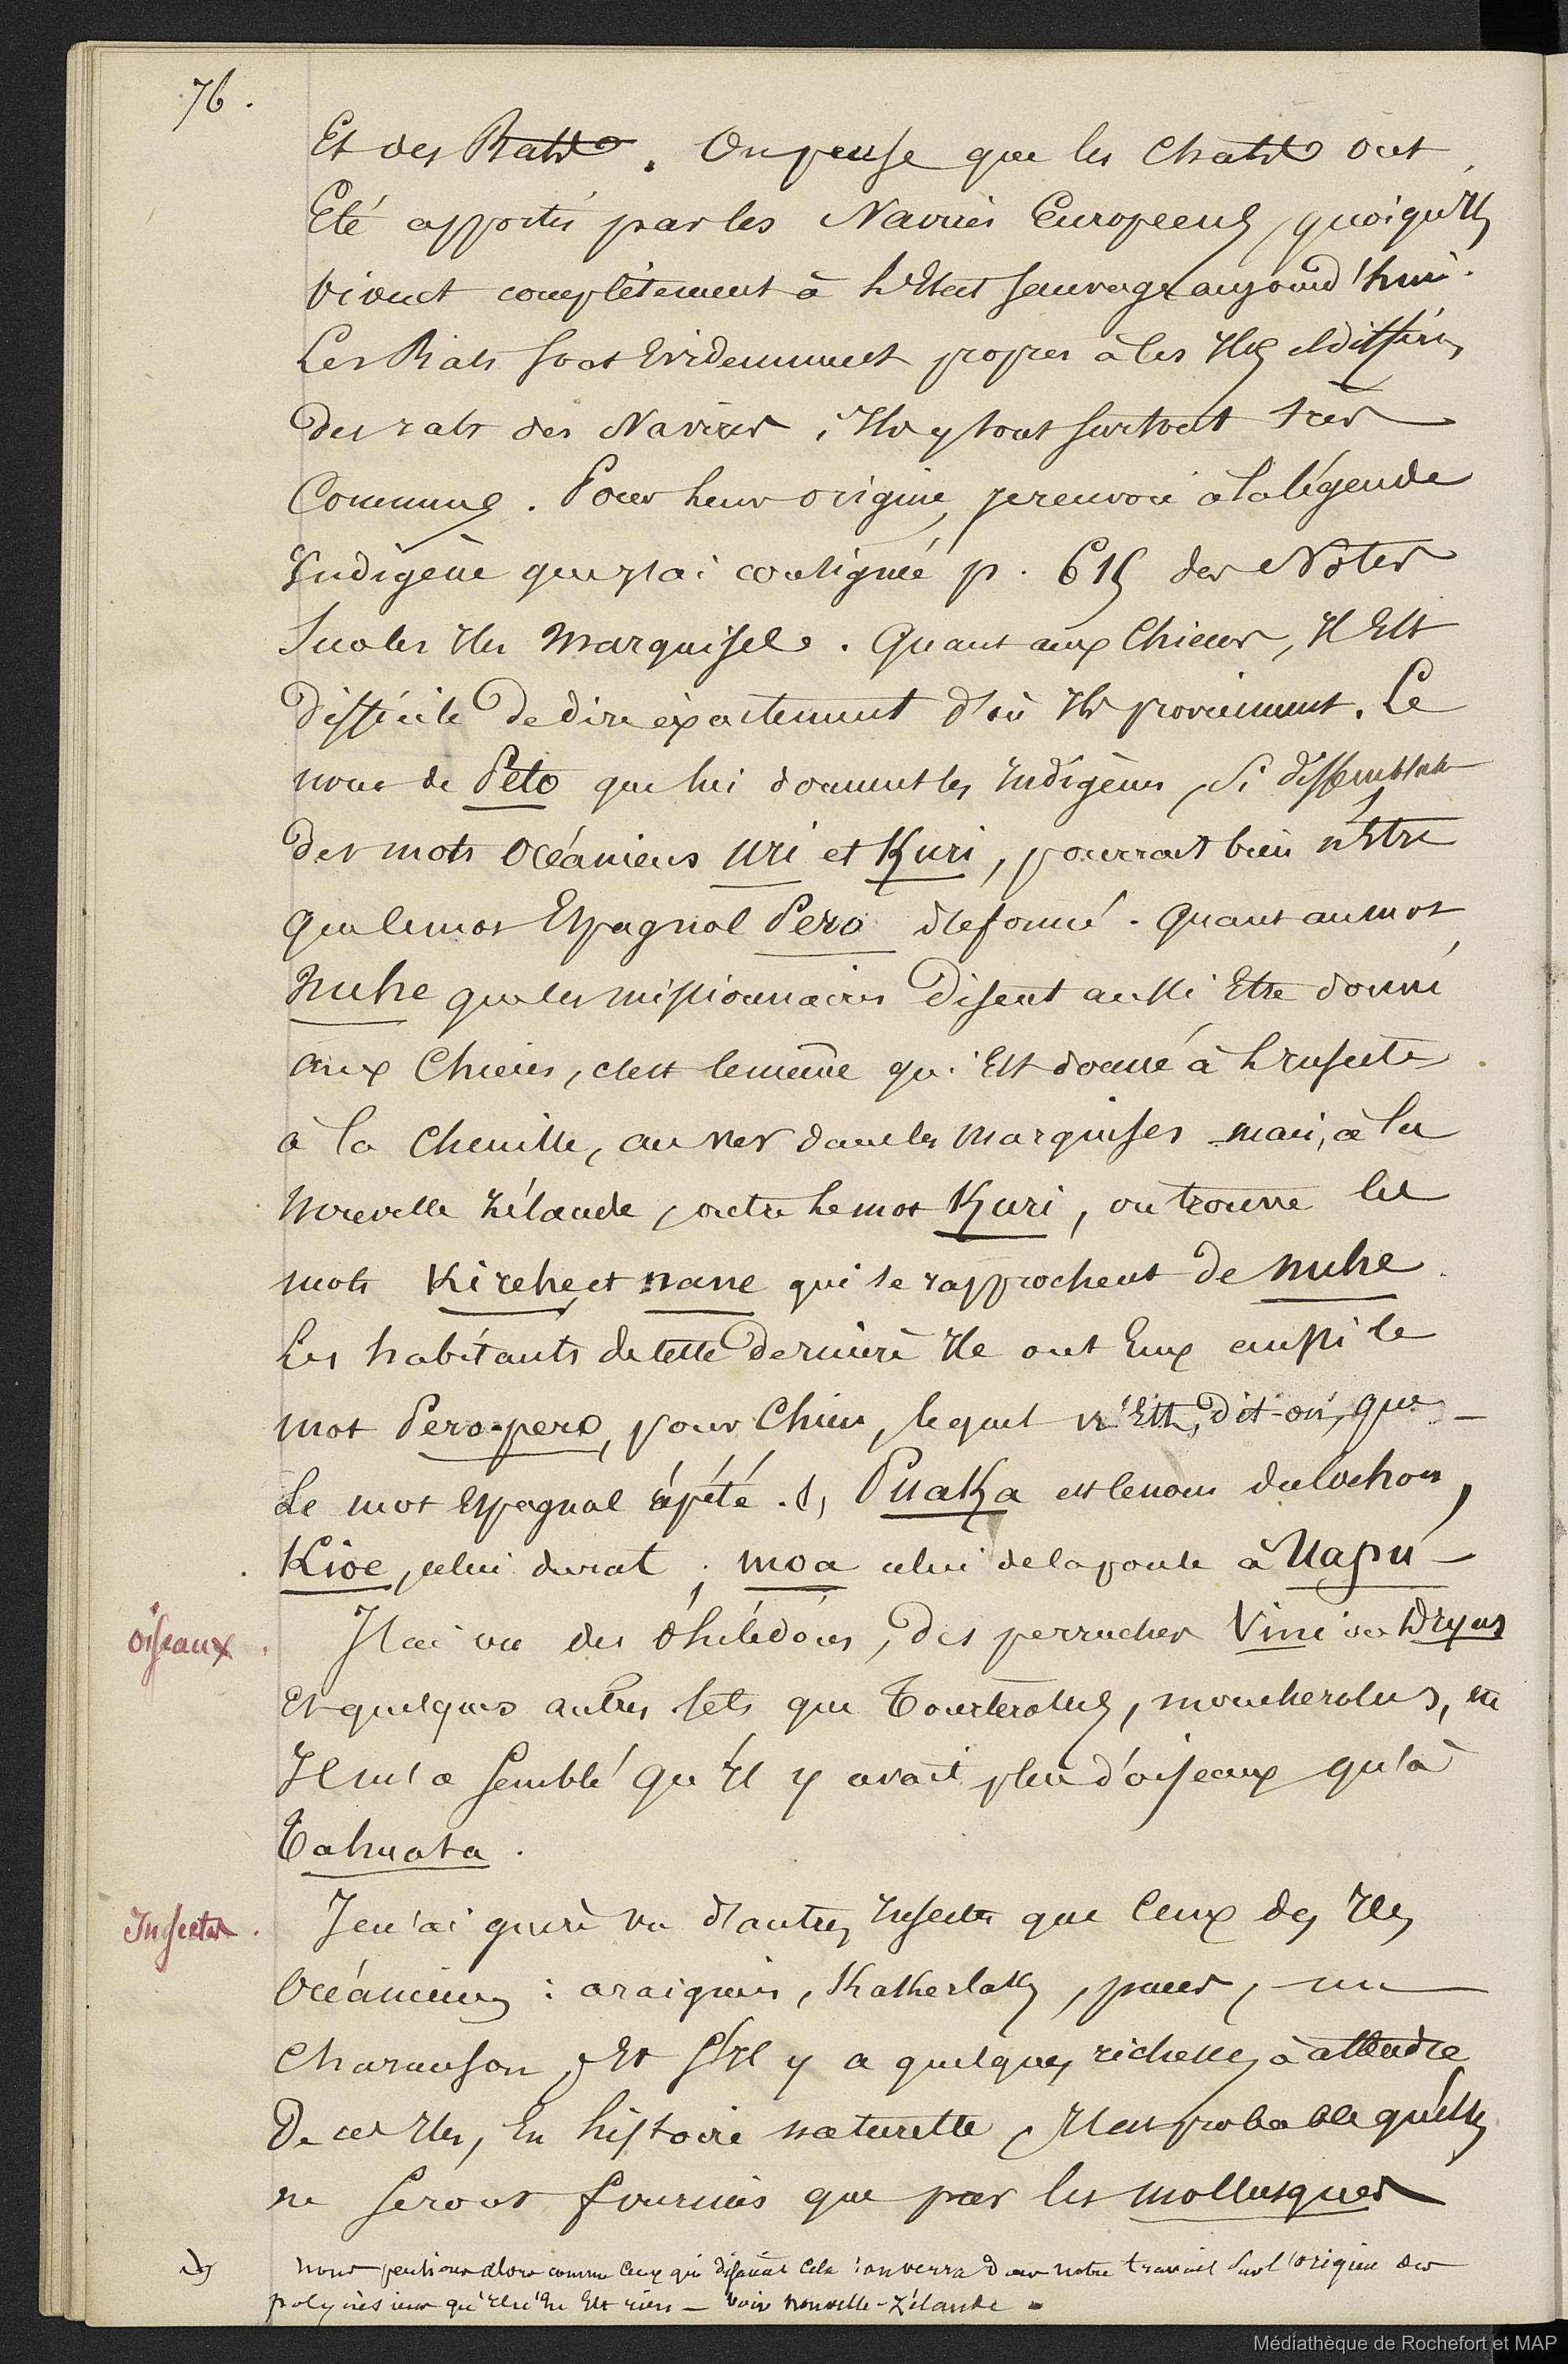 76.
Et des Rats. On pense que les Chats ont
Eté apportés par les Navires Européens, quoiqu'Ils
vivent complètement à l'Etat sauvage aujourd'hui.
Les Rats sont Evidemment propres à les Iles et diffèrent
des rats des Navires, Ils y sont surtout très
Communs. Pour leur origine, je renvoie à la légende
Indigène que j'ai consignée p. 615 des Notes
Sur les Iles Marquises. Quant aux Chiens, Il Est
difficile de dire exactement d'où Ils proviennent. Le
nom de Peto que lui donnent les Indigènes, si dissemblable
des mots Océaniens Uri et Kuri, pourrait bien n'Etre
que le mot Espagnol Pero déformé. Quant au mot
Nuhe que les missionnaires disent aussi Etre donné
aux Chiens, c'est le même qui Est donné à l'Insecte
à la Chenille, au ver dans les Marquises mais, à la
Nouvelle Zélande, outre le mot Kuri, on trouve les
mots Kirehe et nane qui se rapprochent de nuhe.
Les habitants de cette dernière Ile ont Eux aussi le
mot Pero-pero, pour Chien, lequel n'Est, dit-on, que
Le mot Espagnol répété. (1) Puaka est le nom du Cochon,
Kioe, celui du rat, moa celui de la poule à Uapu
Oiseaux. J'ai vu des Philédons, des perruches Vini ou Dryas
Et quelques autres tels que Tourterolles, moucherolles, etc
Il m'a semblé qu'Il y avait plus d'oiseaux qu'à
Tahuata.
Insectes. Je n'ai guère vu d'autres Insectes que Ceux des Iles
Océaniennes : araignées, Kakerlaks, puces, un
Charanson, Et s'Il y a quelques richesses à attendre
De ces Iles, En histoire naturelle, Il est probable qu'elles
ne seront fournies que par les mollusques
(1) Nous pensions alors comme Ceux qui disaient Cela : on verra dans notre travail sur l'origine des
polynésiens qu'Il n'En Est rien - voir Nouvelle-Zélande -
Médiathèque de Rochefort et MAP